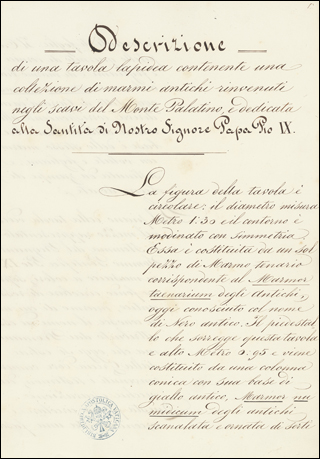 Descrizione
di una tavola lapidea continente una
collezione di marmi antichi rinvenuti
negli scavi del Monte Palatino, e dedicata
alla Santità di Nostro Signore Papa Pio IX.
La figura della tavola è
circolare: il diametro misura
Metro 1:35 e il contorno è
modinato con simmetria
Essa è costituita da un sol
pezzo di Marmo tenario
corrispondente al Marmor
taenarium degli Antichi,
oggi conosciuto col nome
di Nero antico. Il piedestal
lo che sorregge questa tavola
e alto Metro 0.95 e viene
costituito da una colonna
conica con sua base di
giallo antico, Marmor nu
midicum degli antichi
scanalata e ornata di serti